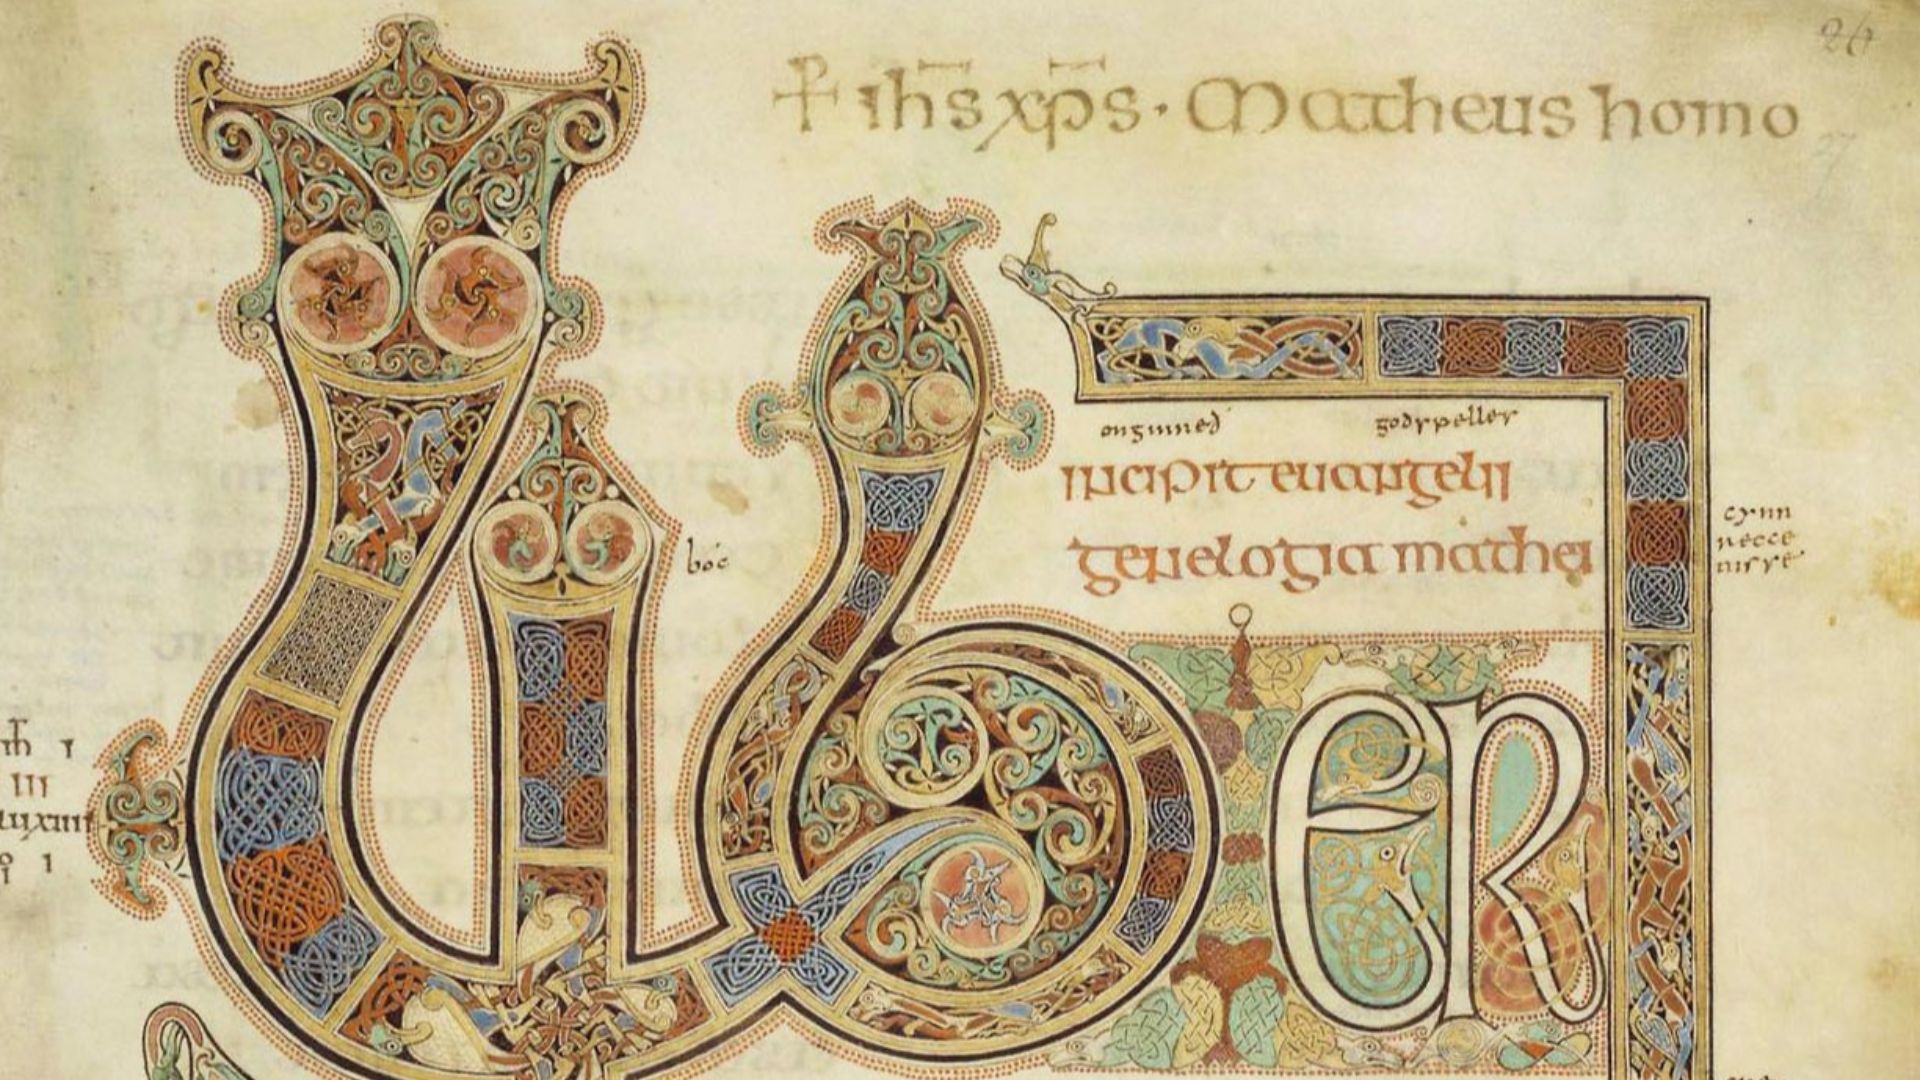 26
+ ihs xps · Matheus homo
27
onginneð godspelles
incipit euangelii
genelogia mathei
cynn
recce
nisse
boc
LibER